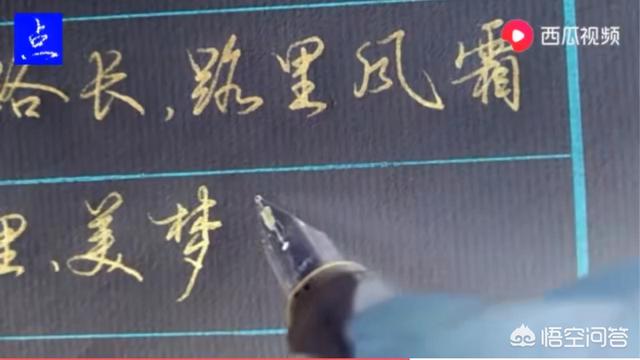 点
西瓜视频
路长，路里风霜
里、美梦
悟空问答